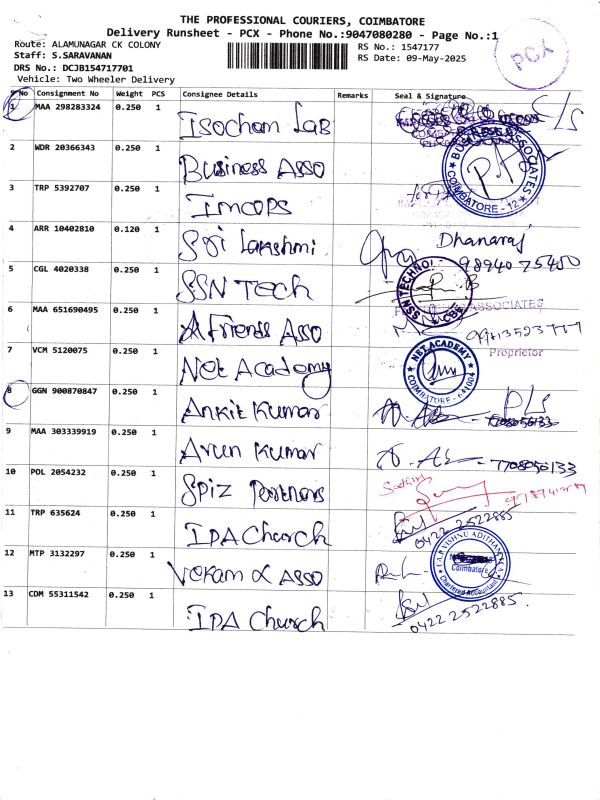 THE PROFESSIONAL COURIERS, COIMBATORE
Delivery Runsheet - PCX - Phone No.:9047080280 - Page No.:1
Route: ALAMUNAGAR CK COLONY
RS No.: 1547177
Staff: S.SARAVANAN
RS Date: 09-May-2025
DRS No.: DCJB154717701
Vehicle: Two Wheeler Delivery
PCX
S No Consignment No Weight PCS Consignee Details Remarks Seal & Signature
1 MAA 298283324 0.250 1 Isocham Lab
2 WDR 20366343 0.250 1 Business Asso
BUSINESS ASSOCIATES COIMBATORE - 12
3 TRP 5392707 0.250 1 IMCOPS
4 ARR 10402810 0.120 1 Sri Lakshmi Dhanaraj
9894075450
5 CGL 4020338 0.250 1 SSN Tech
SSN TECHNO CBE
6 MAA 651690495 0.250 1 A friends Asso
ASSOCIATES
Proprietor
7 VCM 5120075 0.250 1 Net Academy
NET ACADEMY COIMBATORE - 641004
8 GGN 900870847 0.250 1 Ankit Kumar
9 MAA 303339919 0.250 1 Arun Kumar 7708056133
10 POL 2054232 0.250 1 Spiz Partners
11 TRP 635624 0.250 1 IPA Church
0422 2522885
12 MTP 3132297 0.250 1 Asso
Coimbatore
Chartered Accountant
13 CDM 55311542 0.250 1 IPA Church
0422 2522885